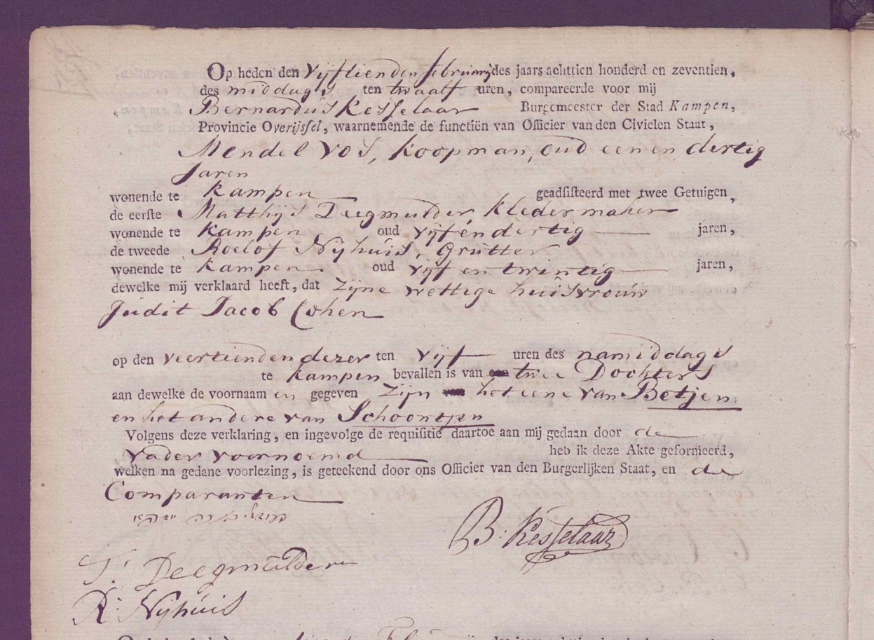 Op heden den Vijftienden februarij des jaars achttien honderd en zeventien,
des middags ten twaalf uren, compareerde voor mij
Bernardus Kesselaar Burgemeester der Stad Kampen,
Provincie Overijssel, waarnemende de functiën van Officier van den Civielen Staat,
Mendel Vos, Koopman, oud een en dertig
Jaren
wonende te Kampen geadsisteerd met twee Getuigen,
de eerste Matthijs Deegmulder, Kledermaker
wonende te Kampen oud vijfendertig jaren,
de tweede Roelof Nijhuis, Grutter
wonende te Kampen oud vijf en twintig jaren,
dewelke mij verklaard heeft, dat zijne wettige huisvrouw
Judit Jacob Cohen
op den veertienden dezer ten vijf uren des namiddags
te Kampen bevallen is van twee Dochters
aan dewelke de voornaam en gegeven zijn het eene van Betjen
en het andere van Schoontjen
Volgens deze verklaring, en ingevolge de requisitie daartoe aan mij gedaan door de
Vader voornoemd heb ik deze Akte geformeerd,
welken na gedane voorlezing, is geteekend door ons Officier van den Burgerlijken Staat, en de
Comparanten
B. Kesselaar
Deegmulder
R. Nijhuis